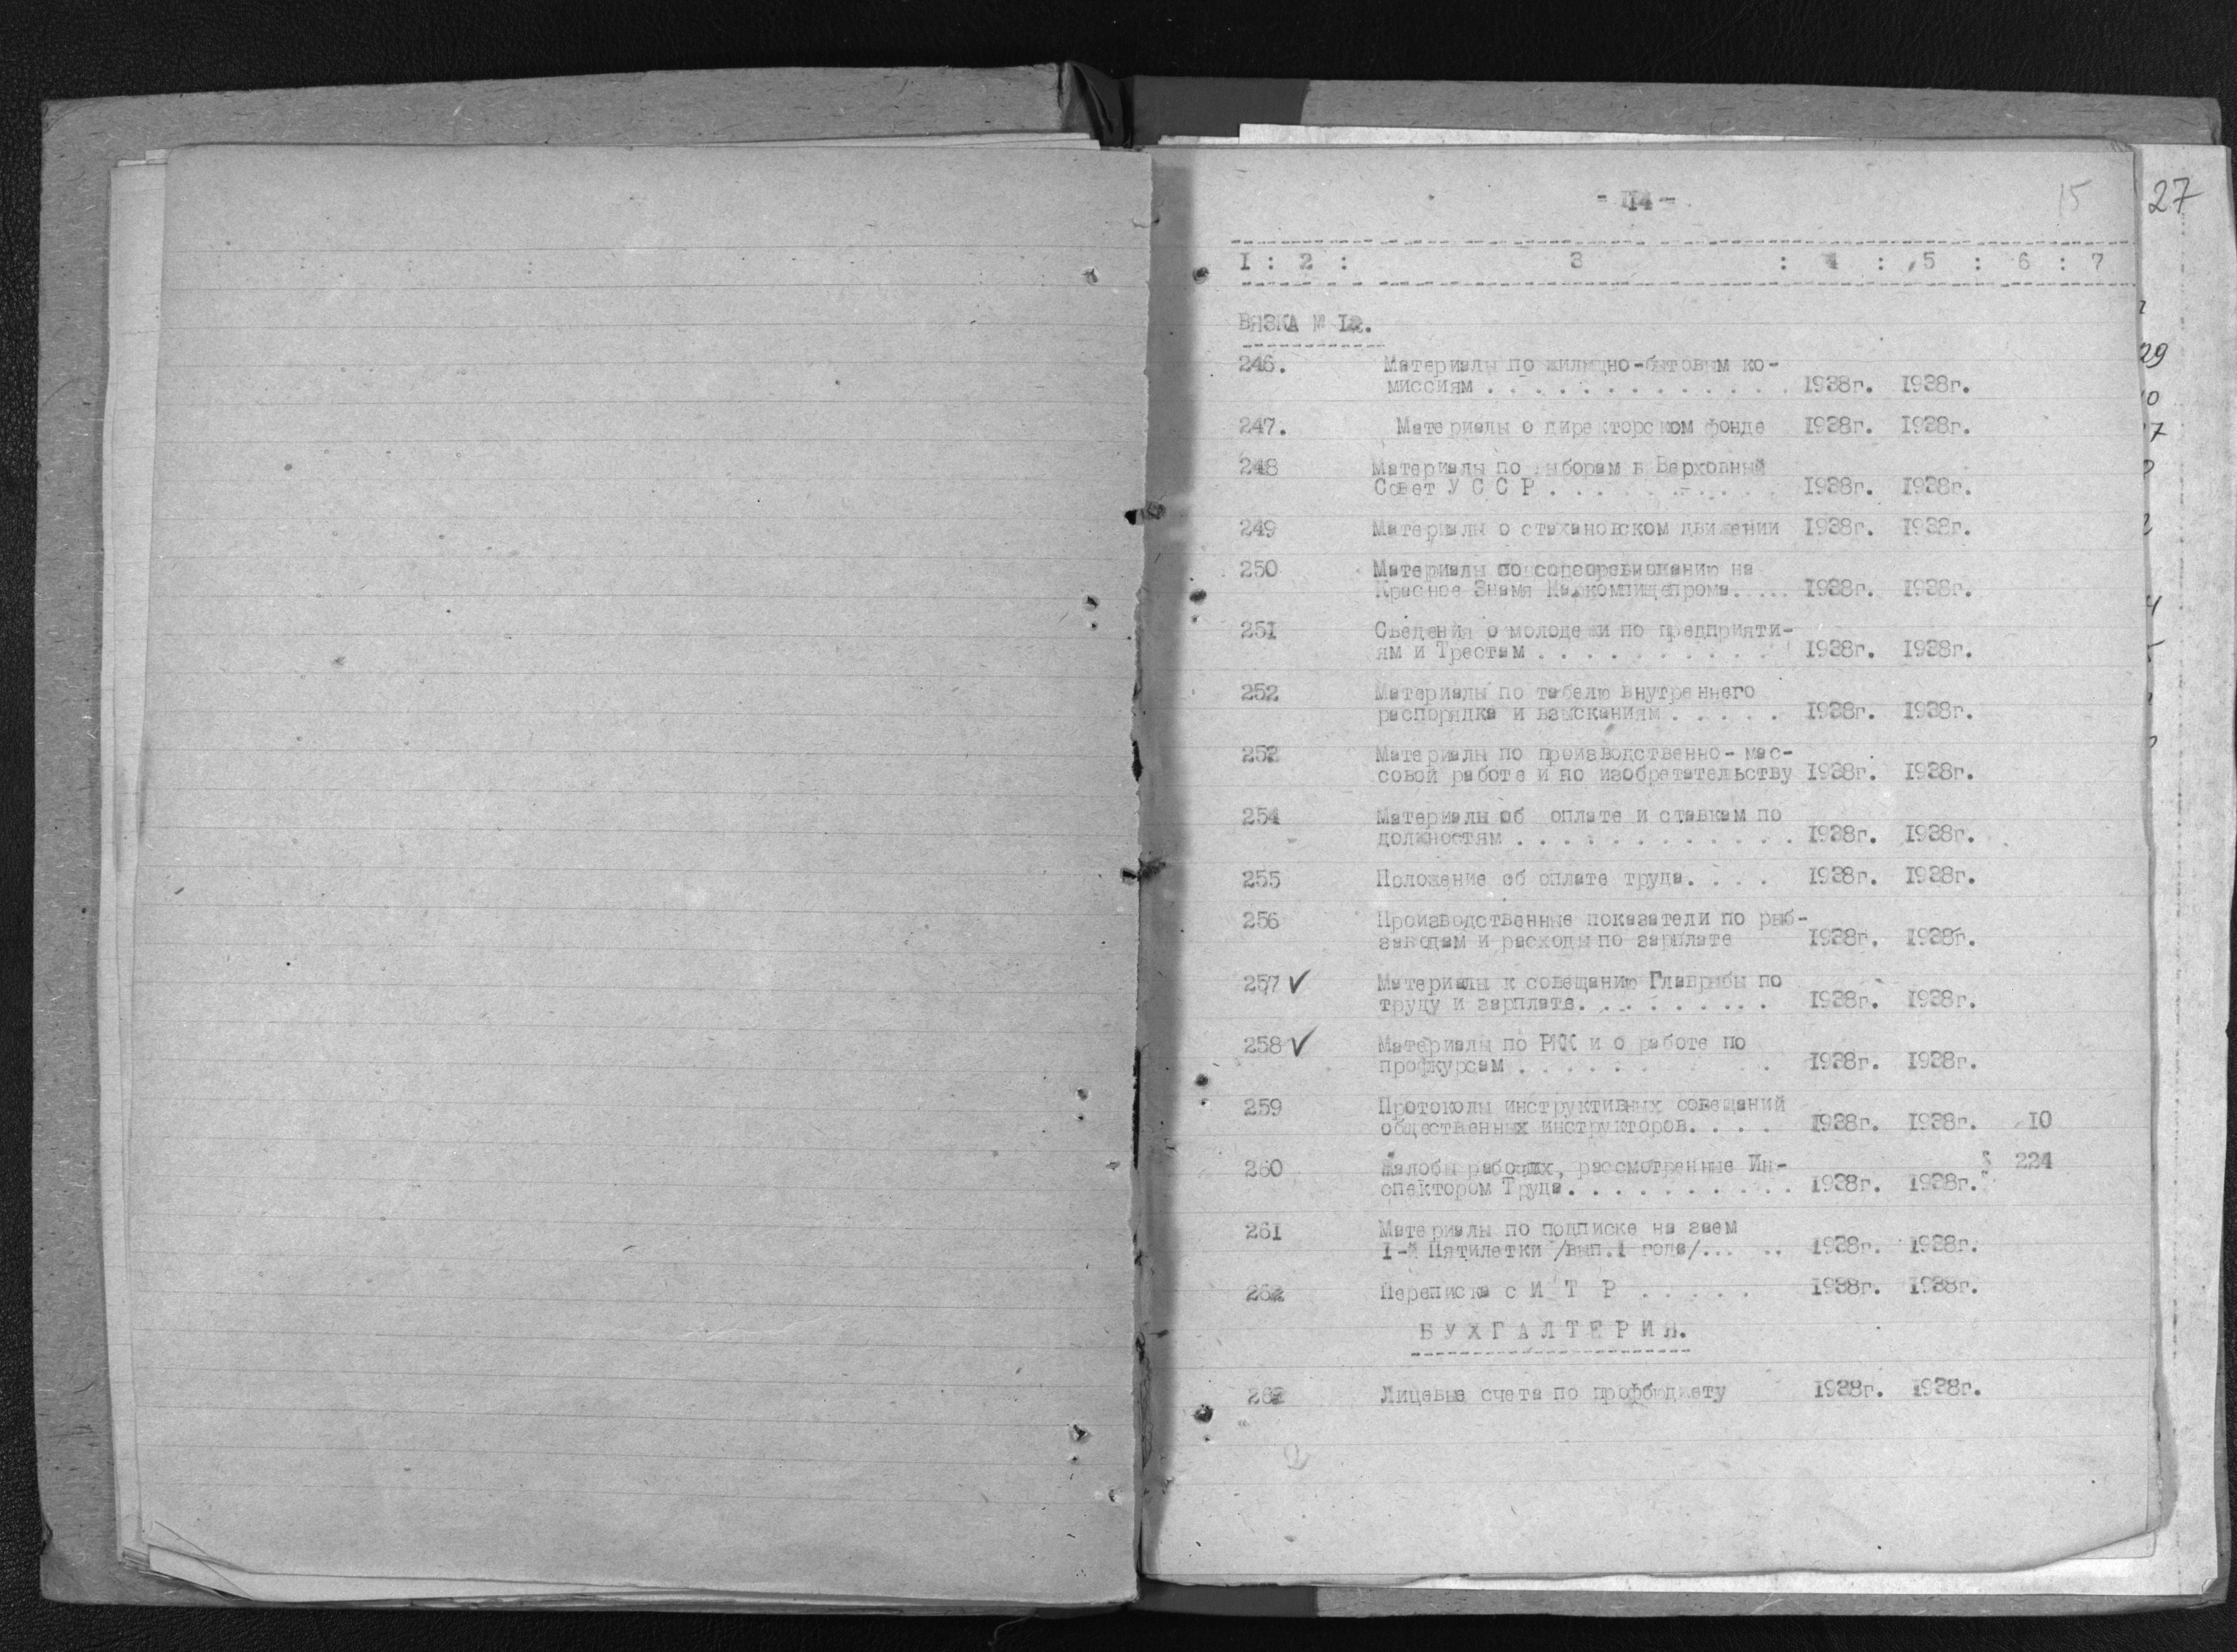 - 14 -
15
27
I : 2 : 3 : 4 : 5 : 6 : 7
ВЯЗКА № 12.
246. Материалы по жилищно-бытовым ко-
миссиям . . . . . . . . . . . . . 1938г. 1938г.
247. Материалы о директорском фонде 1938г. 1938г.
248 Материалы по выборам в Верховный
Совет У С С Р . . . . . . . . . . 1938г. 1938г.
249 Материалы о стахановском движении 1938г. 1938г.
250 Материалы по соцсоревнованию на
Красное Знамя Наркомпищепрома. ... 1938г. 1938г.
251 Сведения о молодежи по предприяти-
ям и Трестам . . . . . . . . . . 1938г. 1938г.
252 Материалы по табелю внутреннего
распорядка и взысканиям . . . . . 1938г. 1938г.
253 Материалы по производственно-мас-
совой работе и по изобретательству 1938г. 1938г.
254 Материалы об оплате и ставкам по
должностям . . . . . . . . . . . . 1938г. 1938г.
255 Положение об оплате труда. . . . 1938г. 1938г.
256 Производственные показатели по рыб-
заводам и расходы по зарплате 1938г. 1938г.
257 ✓ Материалы к совещанию Главрыбы по
труду и зарплате. . . . . . . . . 1938г. 1938г.
258 ✓ Материалы по РКК и о работе по
профкурсам . . . . . . . . . . . 1938г. 1938г.
259 Протоколы инструктивных совещаний
общественных инструкторов. . . . 1938г. 1938г. 10
260 Жалобы рабочих, рассмотренные Ин- 224
спектором Труда. . . . . . . . . . 1938г. 1938г.
261 Материалы по подписке на заем
I-й Пятилетки /вып.1 года/... .. 1938г. 1938г.
262 Переписка с И Т Р . . . . . 1938г. 1938г.
Б У Х Г А Л Т Е Р И Я.
263 Лицевые счета по профбюджету 1938г. 1938г.
2